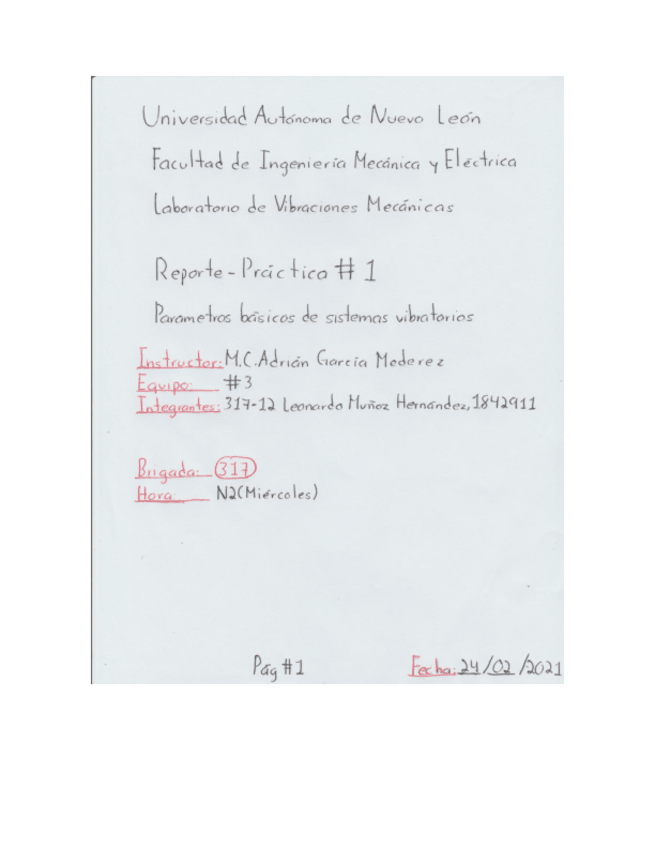 Universidad Autónoma de Nuevo León
Facultad de Ingeniería Mecánica y Eléctrica
Laboratorio de Vibraciones Mecánicas
Reporte-Práctica # 1
Parametros básicos de sistemas vibratorios
Instructor: M.C. Adrián García Mederez
Equipo: #3
Integrantes: 317-12 Leonardo Muñoz Hernández, 1842911
Brigada: 317
Hora: N2(Miércoles)
Pág #1
Fecha: 24/02/2021